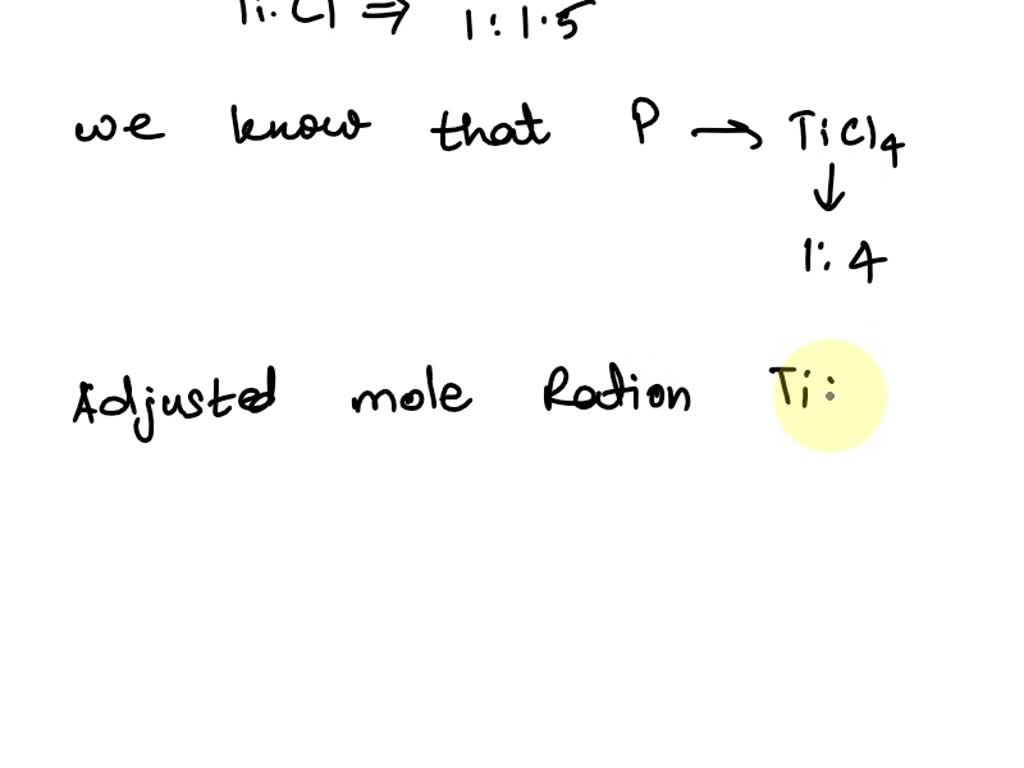 Ti:Cl ⇒ 1:1.5
we know that P → TiCl₄
↓
1:4
Adjusted mole Ration Ti: